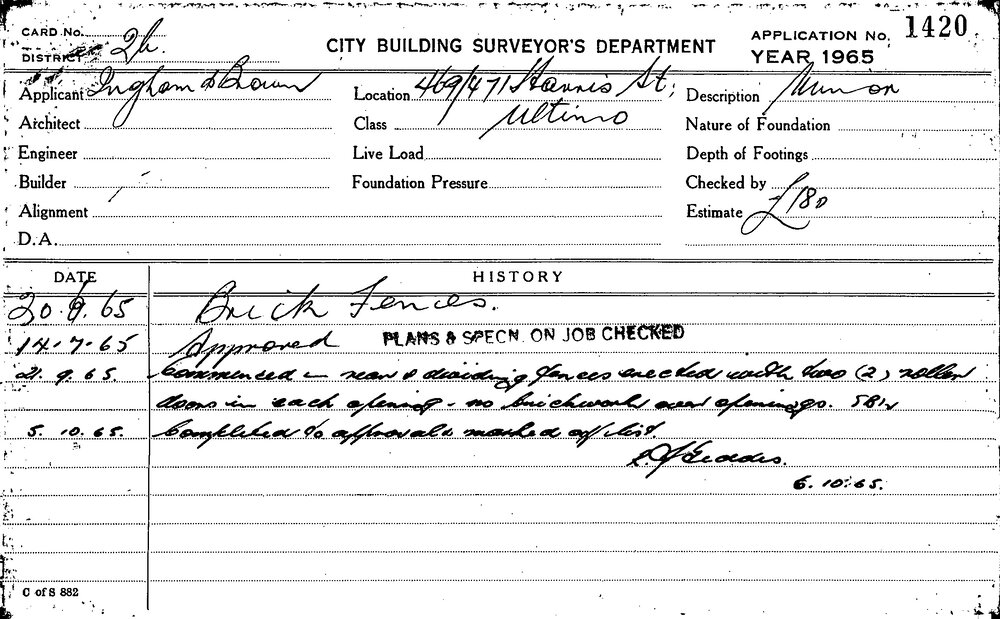 CARD No.
DISTRICT 2h.
CITY BUILDING SURVEYOR'S DEPARTMENT
APPLICATION No. 1420
YEAR 1965
Applicant Ingham & Brown
Location 469/471 Harris St;
Description Minor
Architect
Class Ultimo
Nature of Foundation
Engineer
Live Load
Depth of Footings
Builder
Foundation Pressure
Checked by
Alignment
Estimate £180
D.A.
DATE
HISTORY
20.6.65 Brick Fences.
14.7.65 Approved PLANS & SPECN. ON JOB CHECKED
21.9.65. Commenced - rear & dividing fences erected with two (2) roller
doors in each opening - no brickwork over openings.
5.10.65. Completed to approval & marked off list.
Geddes.
6.10.65.
C of S 882